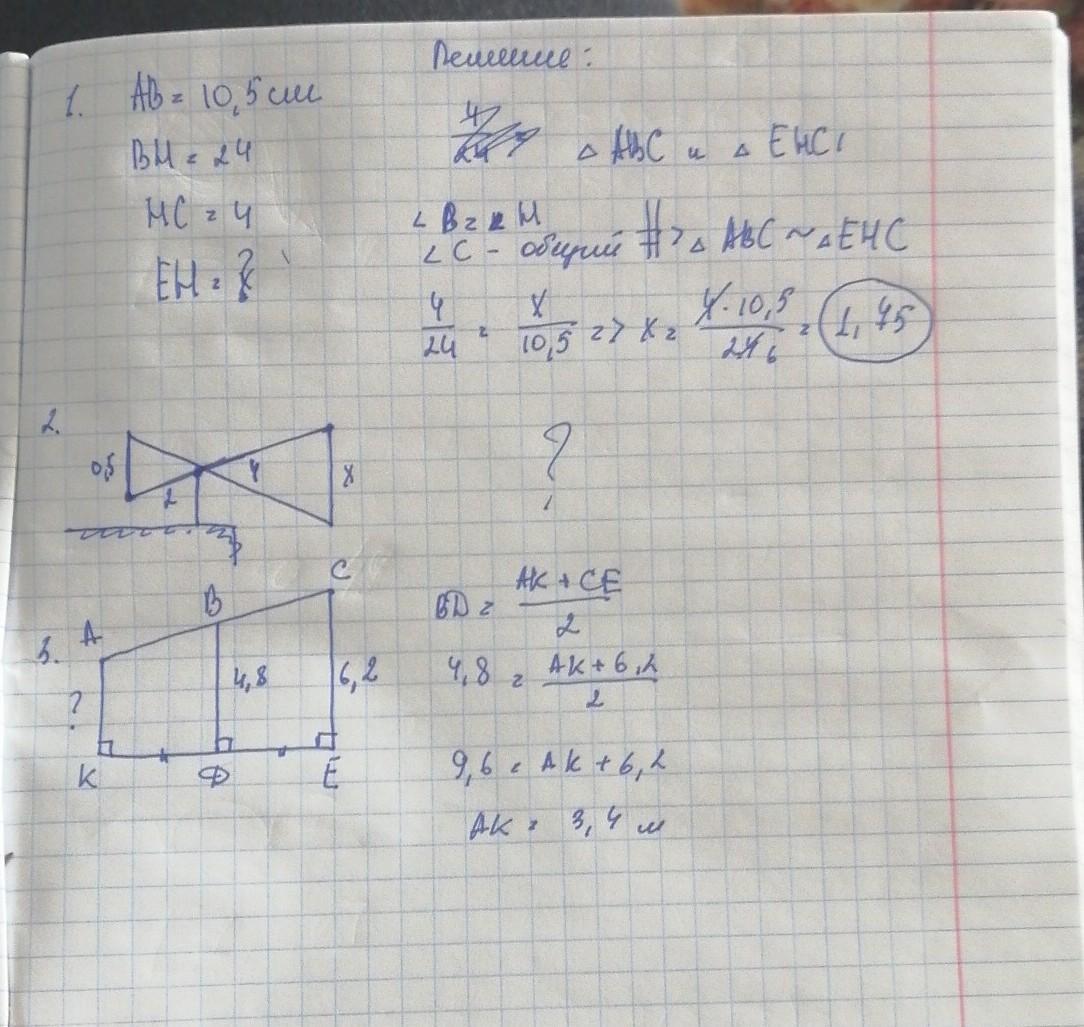 Решение:
1. AB = 10,5 см
BH = 24
△ ABC и △ EHC,
HC = 4
∠B = ∠H
∠C - общий => △ ABC ~ △ EHC
EH = ?
4/24 = x/10,5 => x = 4·10,5/24 6 = 1,75
2.
0,5 2 4 x
?
3.
A B C
? 4,8 6,2
K D E
BD = AK + CE / 2
4,8 = AK + 6,2 / 2
9,6 = AK + 6,2
AK = 3,4 м